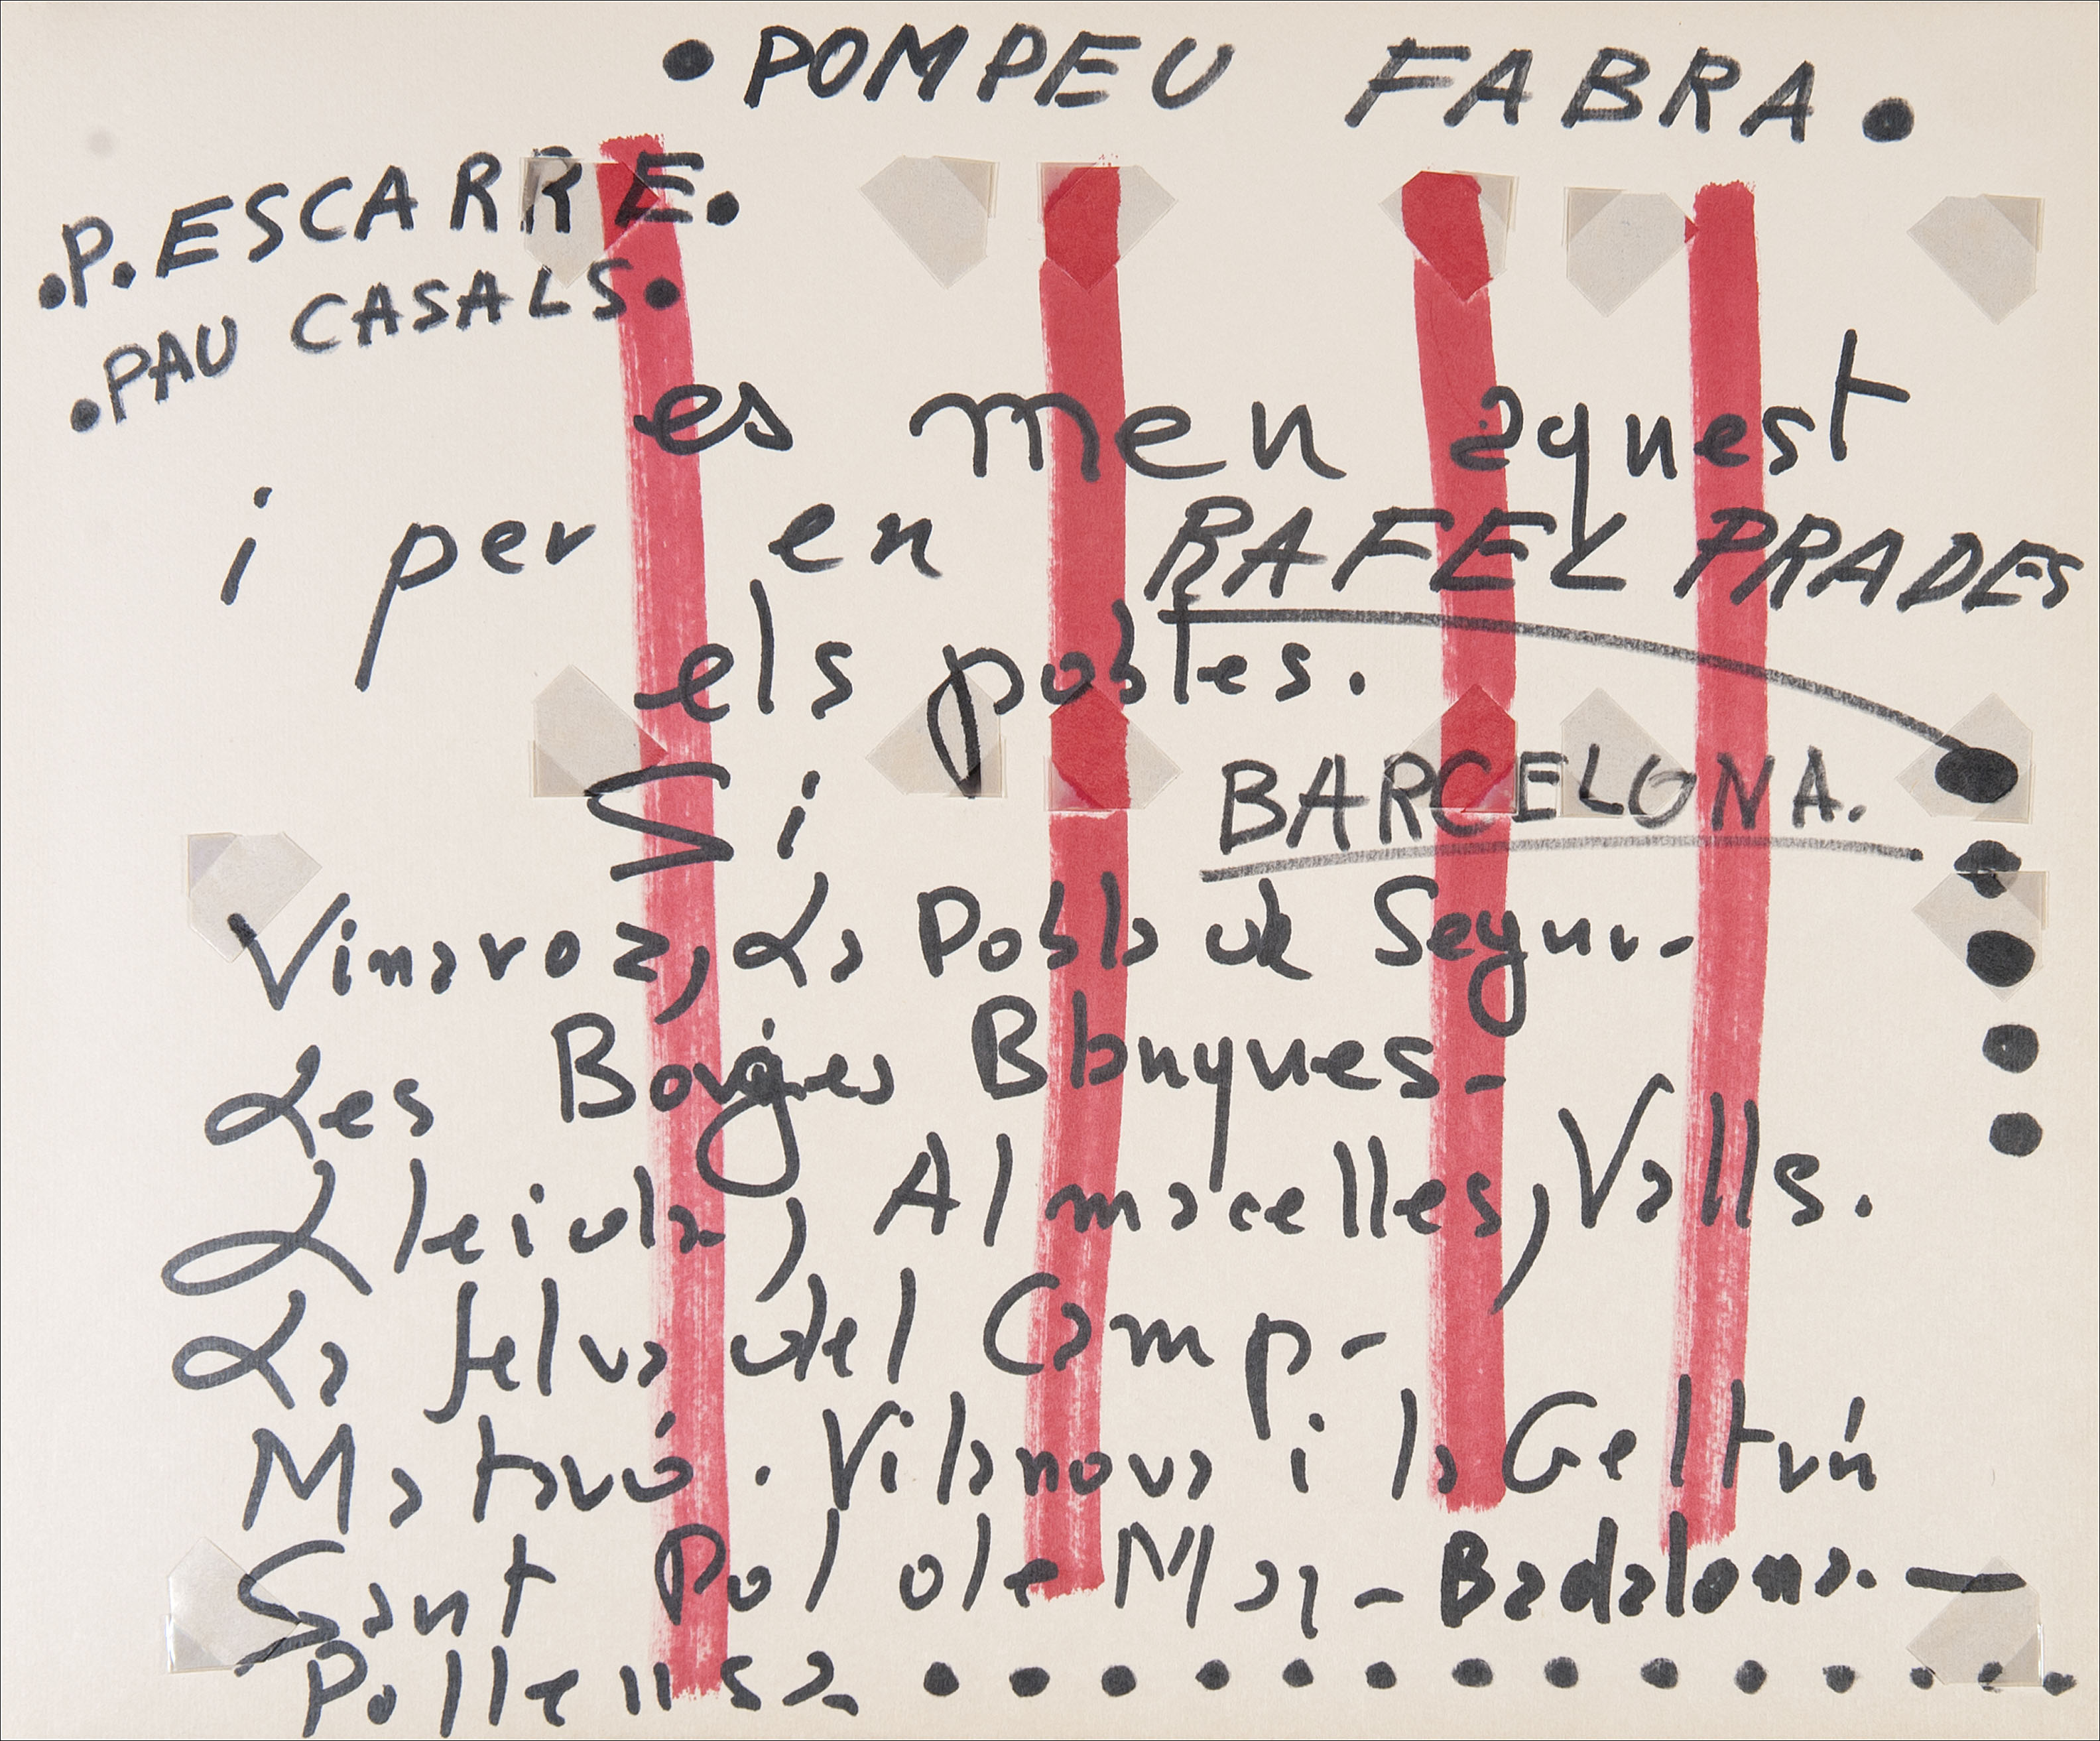 • POMPEU FABRA •
• P. ESCARRE •
• PAU CASALS •
es meu aquest
i per en RAFEL PRADES
els pobles.
Si
BARCELONA.
Vinaroz, La Pobla de Segur -
Les Borges Blanques -
Lleida, Almacelles, Valls.
La Selva del Camp -
Mataró. Vilanova i la Geltrú
Sant Pol de Mar - Badalona. —
Pollensa • • • • • • • • • • • • •